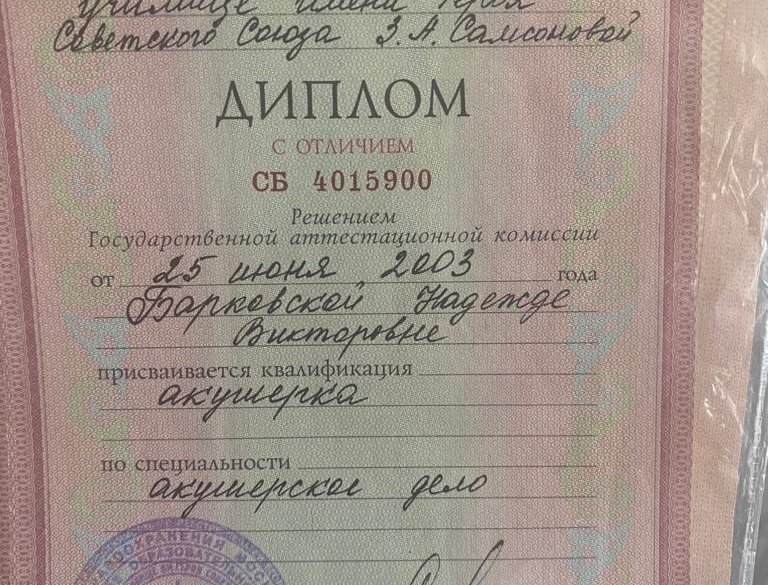 училище имени Героя
Советского Союза З.А. Самсоновой
ДИПЛОМ
С ОТЛИЧИЕМ
СБ 4015900
Решением
Государственной аттестационной комиссии
от 25 июня 2003 года
Барковской Надежде
Викторовне
присваивается квалификация
акушерка
по специальности
акушерское дело
ОБРАЗОВАТЕЛЬНО